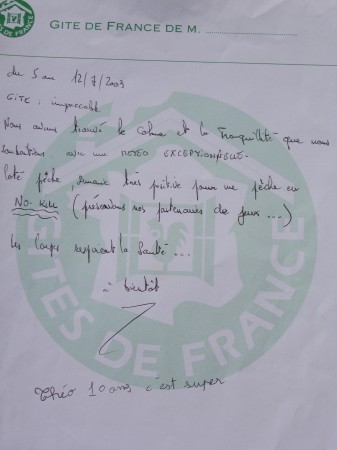 GITES DE FRANCE
GITE DE FRANCE DE M.
du 5 au 12/7/2003
GITE : impeccable
Nous avons trouvé le calme et la Tranquillité que nous
souhaitions, avec une METEO EXCEPTIONNELLE.
Coté pêche, Semaine très positive pour une pêche en
No-Kill (préservons nos partenaires de jeux ...)
Les carpes respirent la Santé ...
à bientôt
Théo 10 ans c'est super
GITES DE FRANCE